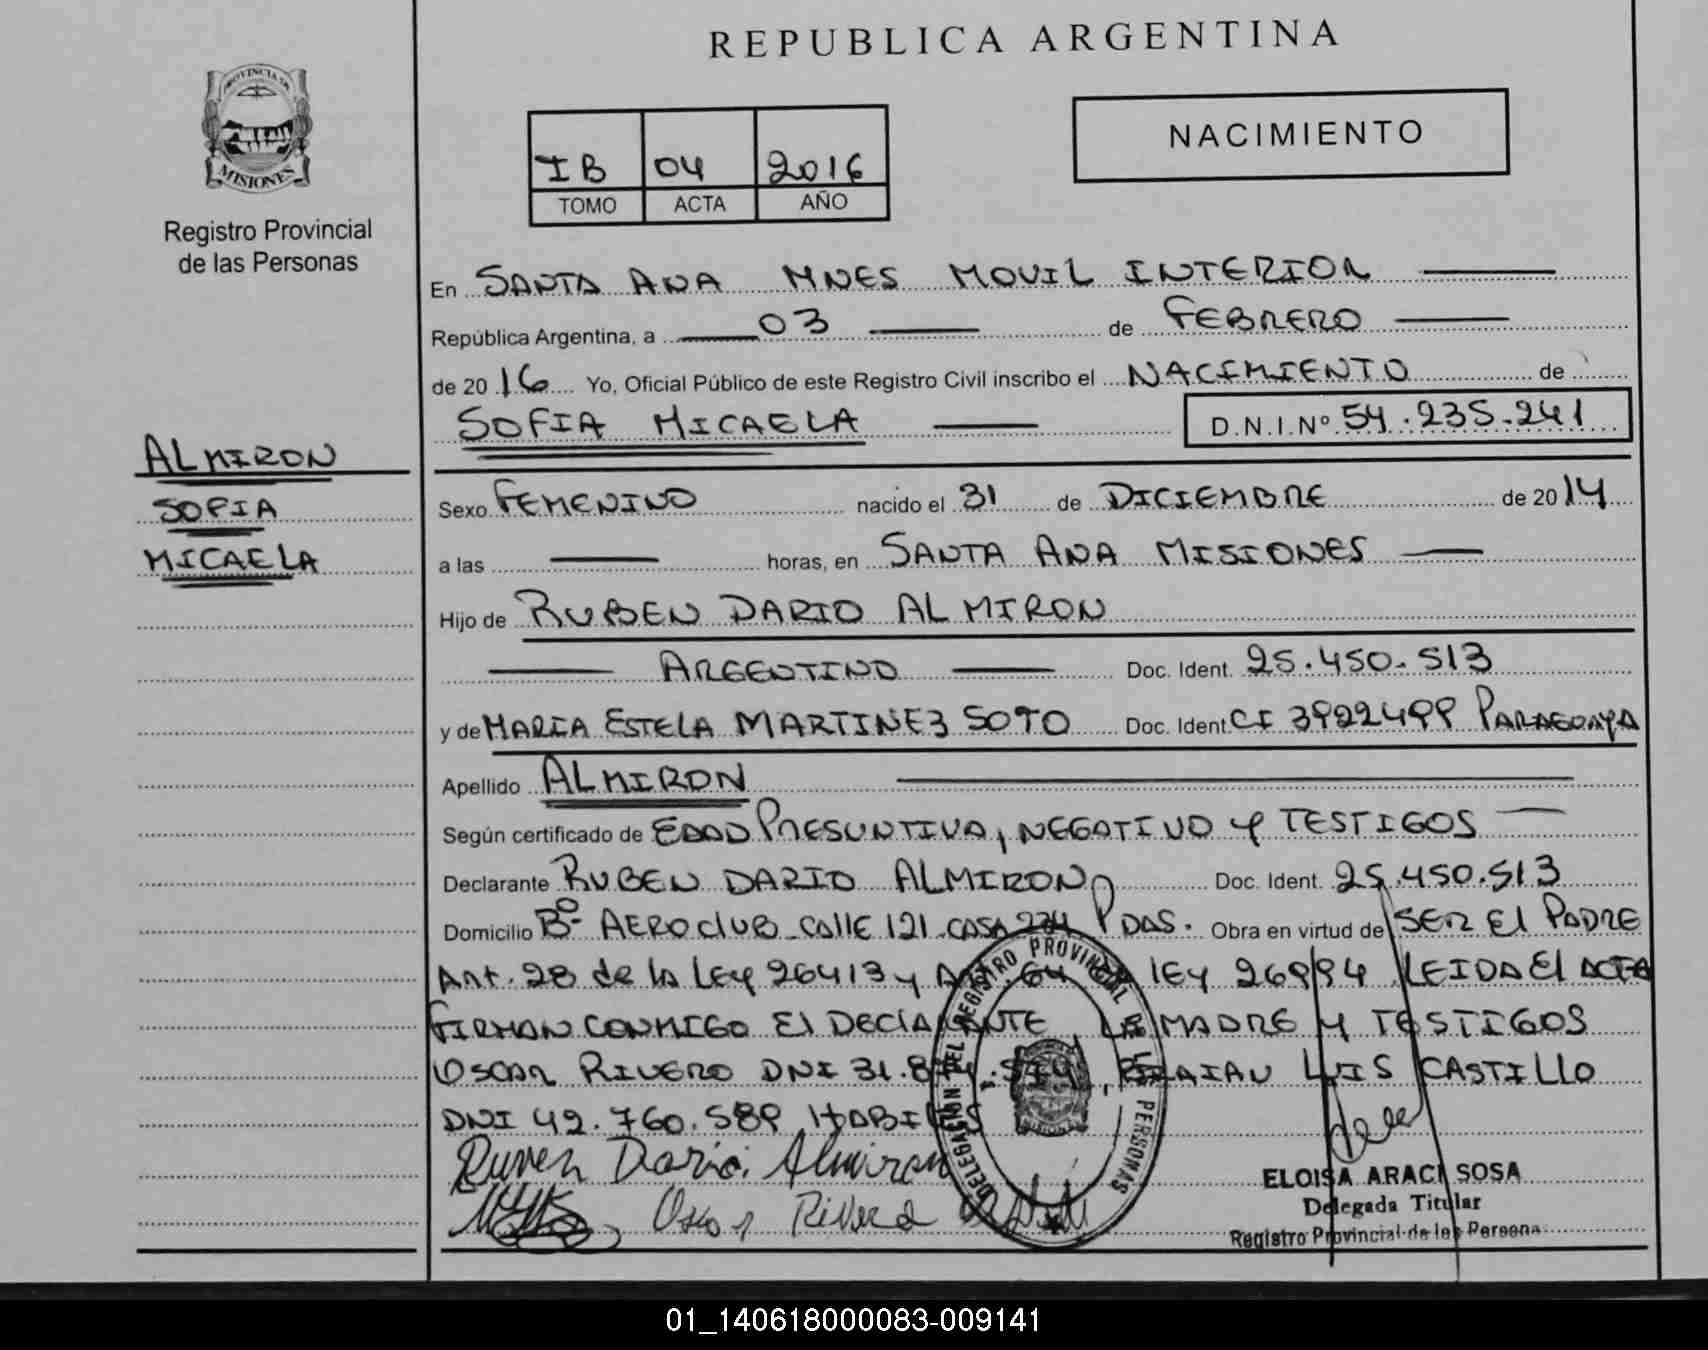 REPUBLICA ARGENTINA
PROVINCIA DE
MISIONES
Registro Provincial
de las Personas
IB 04 2016
TOMO ACTA AÑO
NACIMIENTO
En SANTA ANA MNES MOVIL INTERIOR
República Argentina, a 03 de FEBRERO
de 2016 Yo, Oficial Público de este Registro Civil inscribo el NACIMIENTO de
SOFIA MICAELA D.N.I.Nº 54.235.241
ALMIRON
SOFIA
MICAELA
Sexo FEMENINO nacido el 31 de DICIEMBRE de 2014
a las horas, en SANTA ANA MISIONES
Hijo de RUBEN DARIO ALMIRON
ARGENTINO Doc. Ident. 25.450.513
y de MARIA ESTELA MARTINEZ SOTO Doc. Ident. CI 3922499 PARAGUAYA
Apellido ALMIRON
Según certificado de EDAD PRESUNTIVA, NEGATIVO Y TESTIGOS
Declarante RUBEN DARIO ALMIRON Doc. Ident. 25.450.513
Domicilio Bº AEROclUB CAllE 121 CASA 234 PDAS. Obra en virtud de SER El PADRE
Art. 28 de la LEY 26413 y Art. 64 LEY 26994 LEIDA El ACTA
FIRMAN CONMIGO El DEClARANTE, LA MADRE Y TESTIGOS
OSCAR RIVERO DNI 31. LUIS CASTILLO
DNI 42.760.589 HABILES
Ruven Dario Almiron
Oscar Rivero
DELEGACION DEL REGISTRO PROVINCIAL DE LAS PERSONAS
ELOISA ARACI SOSA
Delegada Titular
Registro Provincial de las Persona
01_140618000083-009141